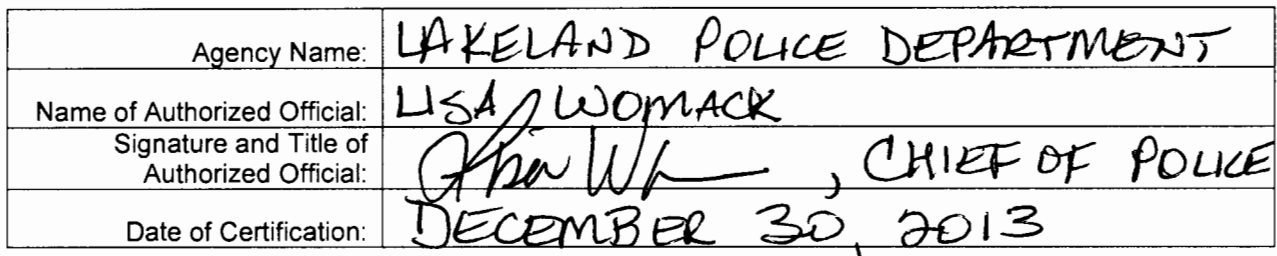 Agency Name: LAKELAND POLICE DEPARTMENT
Name of Authorized Official: LISA WOMACK
Signature and Title of
Authorized Official: , CHIEF OF POLICE
Date of Certification: DECEMBER 30, 2013